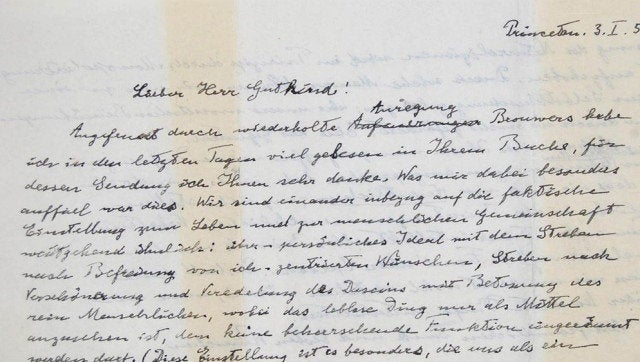 Princeton. 3. I. 5
Lieber Herr Gutkind!
Anregung
Angefeuert durch wiederholte Brouwers habe
ich in den letzten Tagen viel gelesen in Ihrem Buche, für
dessen Sendung ich Ihnen sehr danke. Was mir dabei besonders
auffiel war dies. Wir sind einander inbezug auf die faktische
Einstellung zum Leben und zur menschlichen Gemeinschaft
weitgehend ähnlich: über-persönliches Ideal mit dem Streben
nach Befreiung von ich-zentrierten Wünschen, Streben nach
Verschönerung und Veredelung des Daseins mit Betonung des
rein Menschlichen, wobei das leblose Ding nur als Mittel
anzusehen ist, dem keine beherrschende Funktion eingeräumt
werden darf. (Diese Einstellung ist es besonders, die uns als ein